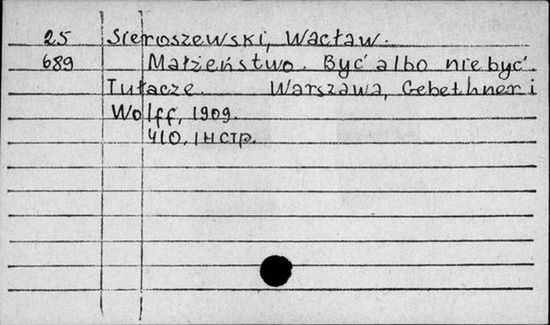 25 Sieroszewski, Wacław.
689 Małżeństwo. Być albo nie być.
Tułacze. Warszawa, Gebethner i
Wolff, 1909.
410, 1 нстр.